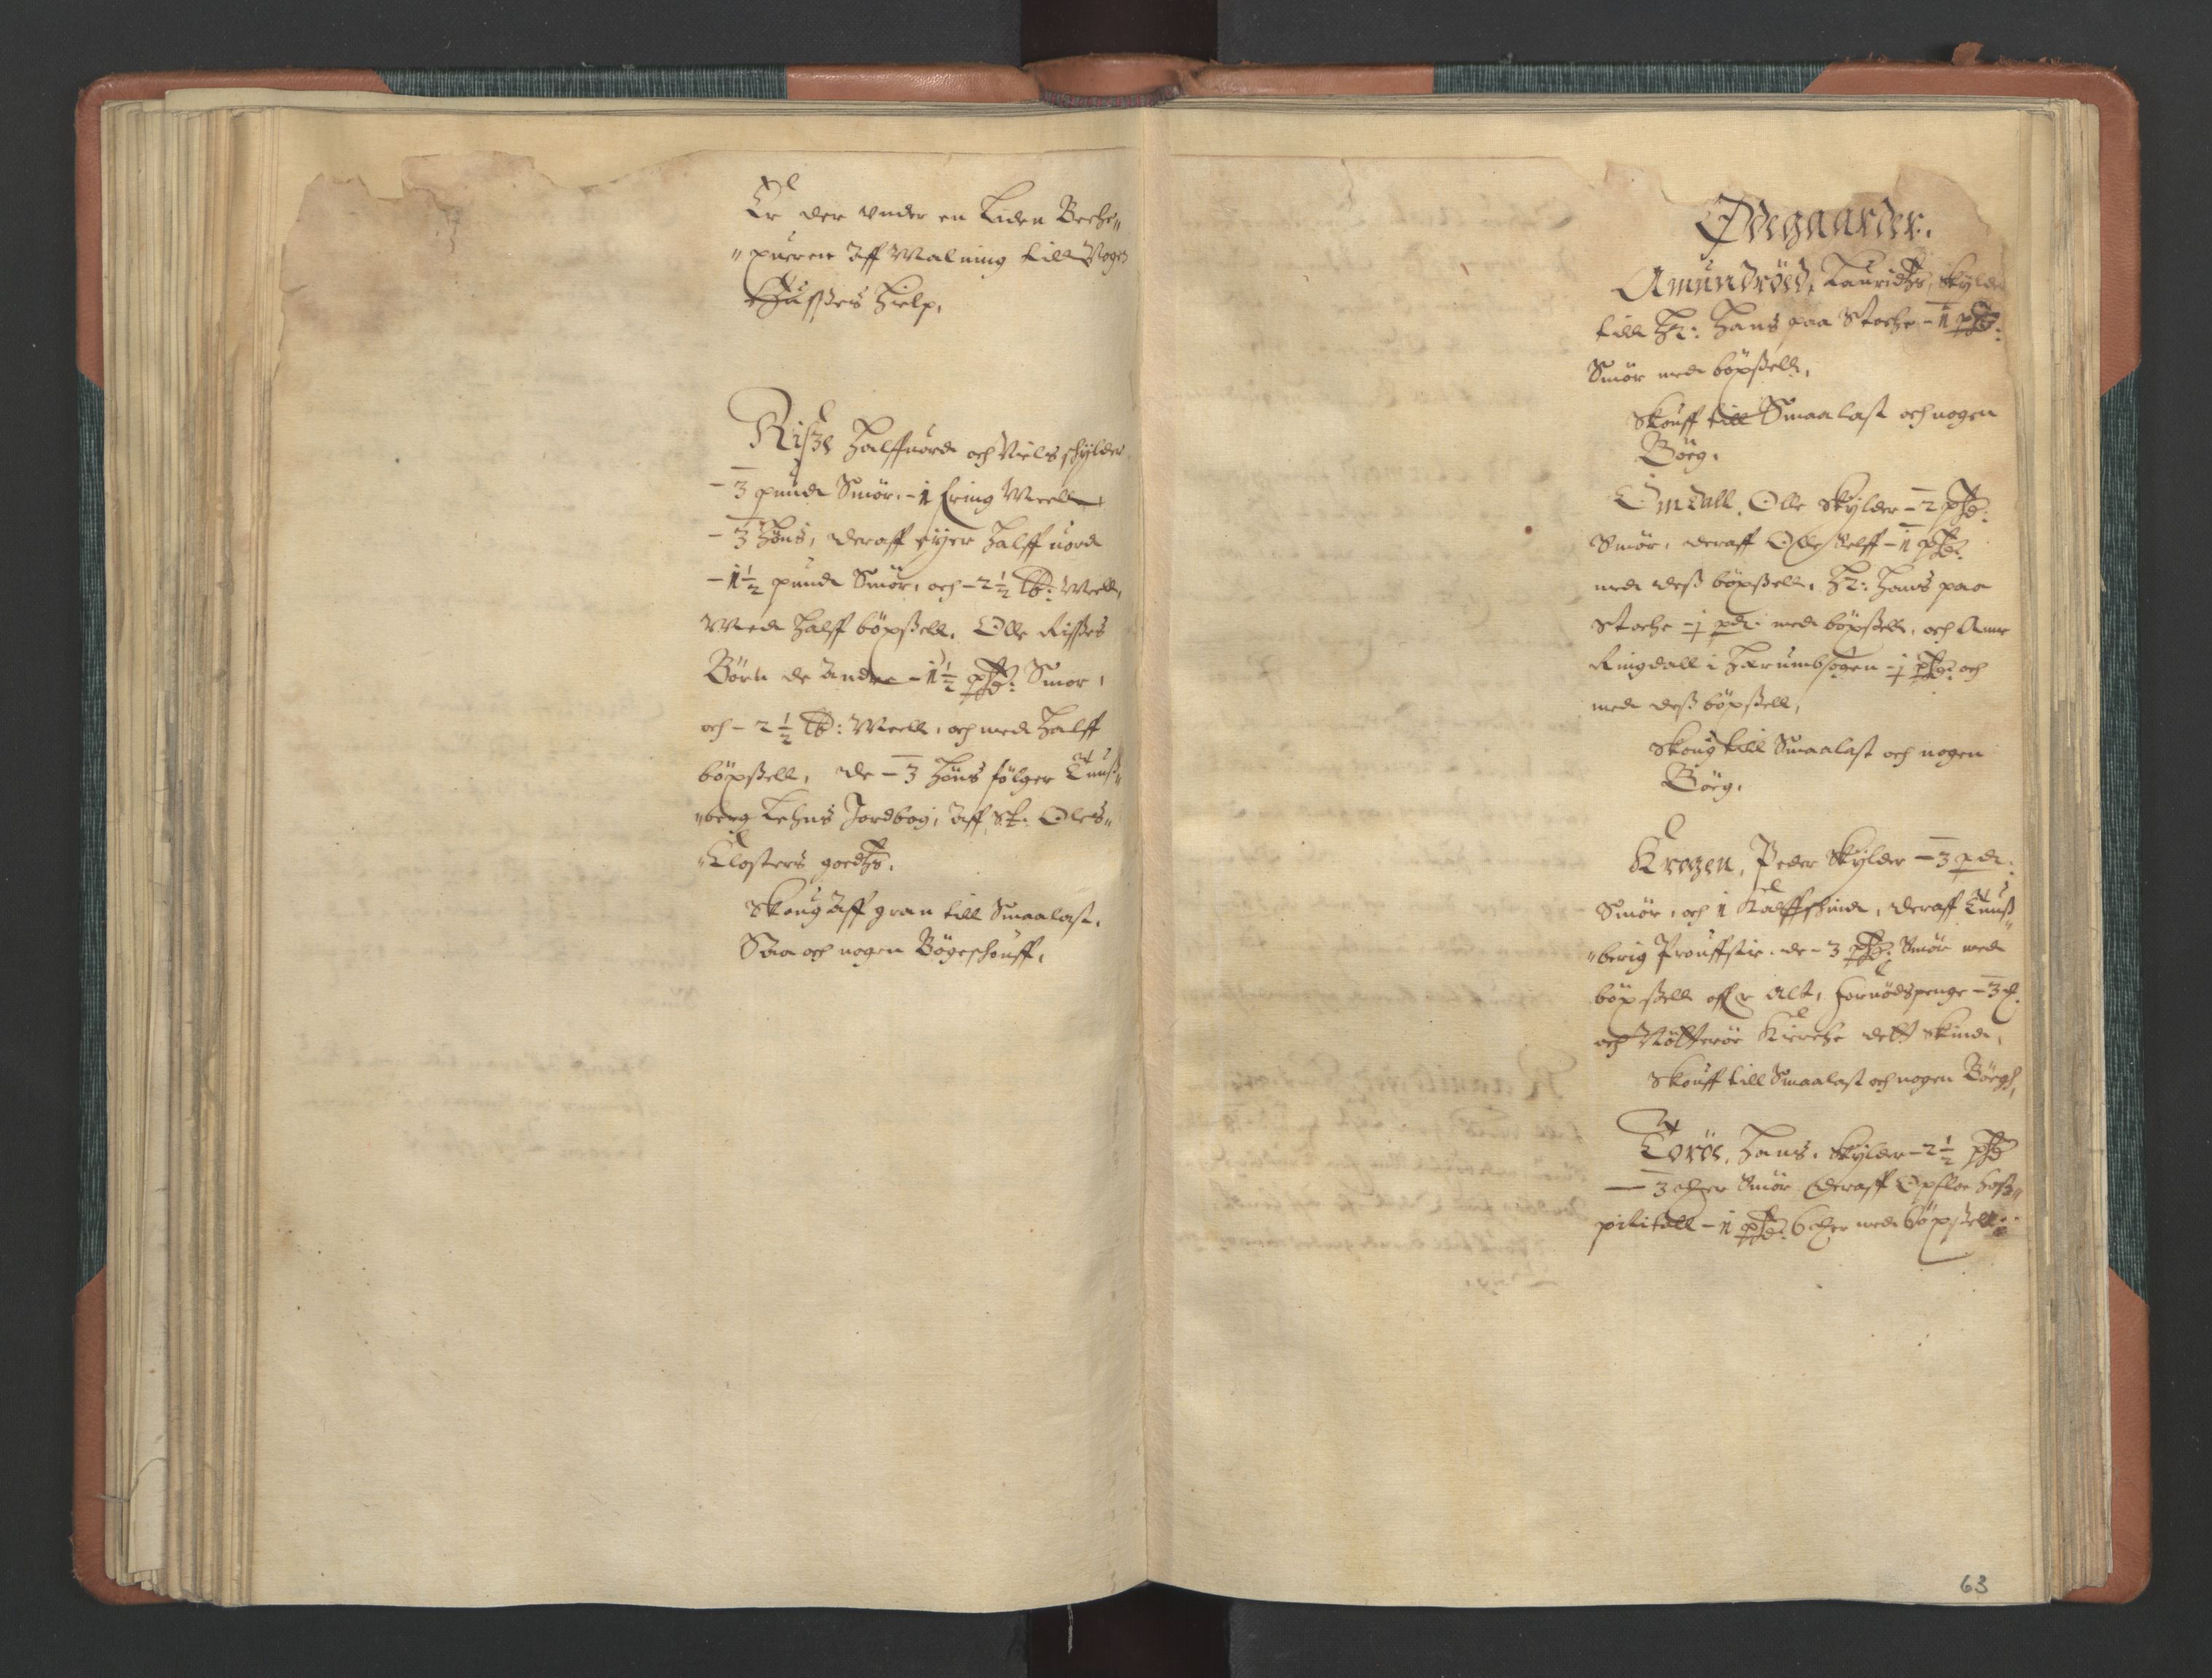 Er der vnder en Liden Beche„
„querrn Aff Malning till Nogen
Hussens Hielp,
Risze Halffuord och Niels schylder
– 3 pund Smør, – 1 Hring Meell,
– 3 Høns, deraff eyer Halffuord
– 1½ pund Smør, och – 2½ ℔: Meell,
Med Halff böxsell. Olle Risses
Börn de Andre – 1½ pd: Smør,
och – 2½ ℔: Meell, och med Halff
böxsell, de – 3 Høns följger Tunß„
„berg Lehns Jordbog, Aff St: Oles„
„Closters goedtz.
Skoug Aff gran till Smaalast.
Saa och nogen Bögeschouff,
Ødegaarder.
Amundröed, Lauridtz, Skylder
till Hr: Hans paa Stoche – 1 pd:
Smør med böxsell,
Skouff till Smaalast och nogen
Bög.
Omdall, Olle Skylder – 2 pd:
Smør, deraff Olle Selff – 1 pd:
med dess böxsell, Hr: Hans paa
Stoche – j pd: med böxsell, och Anne
Ringdall i Hærumbsogen – j pd: och
med dess böxsell,
Skoug till Smaalast och nogen
Bög.
Krogen, Peder Skylder – 3 pd:
Smør, och 1 Kalffschind, deraff Tunß„
„berig Prouffstie de – 3 pd: Smør med
böxsell offr Alt, foruødspenge – 3 ß.
och Nøtterøe Kierche dett Skind,
Skouff till Smaalast och nogen Bög,
Toröe, Hans, Skylder – 2½ pd
– 3 mrker Smør deraff Opsloe Hoß„
pitall – 1 pd: 6 mrker med böxsell:
63